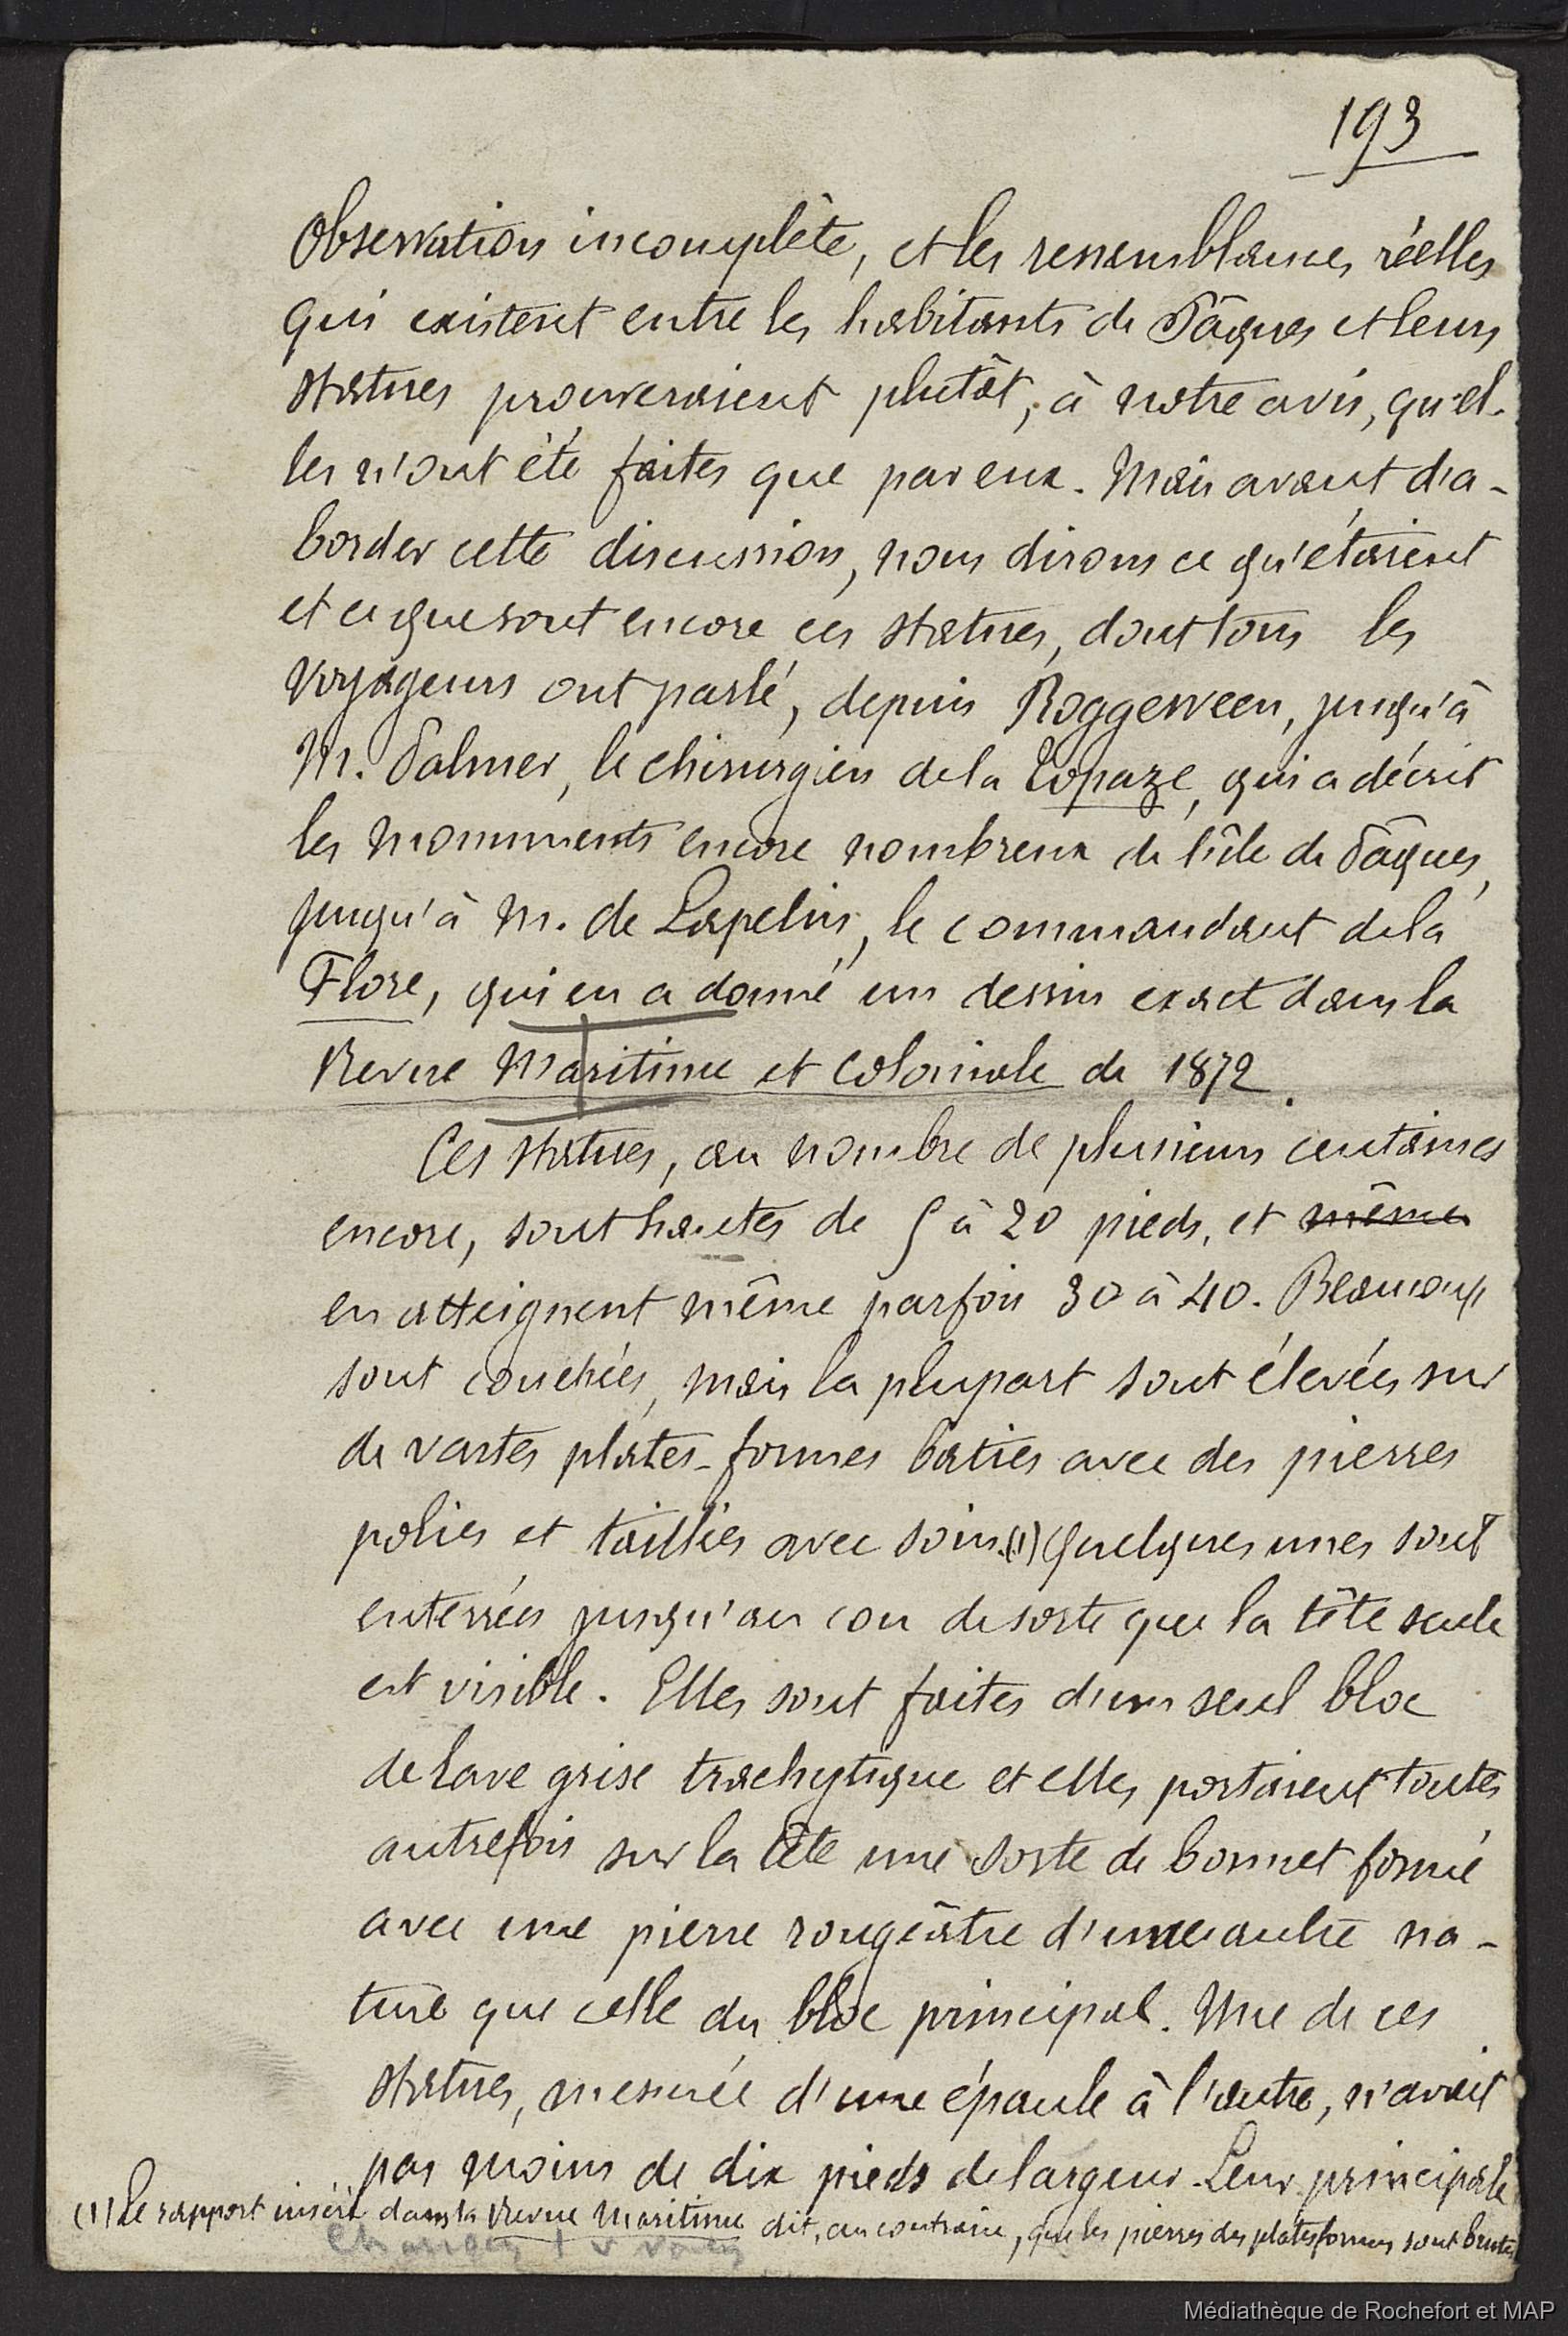 193
Observation incomplète, et les ressemblances réelles
qui existent entre les habitants de Pâques et leurs
statues prouveraient plutôt, à notre avis, qu'el-
les n'ont été faites que par eux. Mais avant d'a-
border cette discussion, nous dirons ce qu'étaient
et ce que sont encore ces statues, dont tous les
voyageurs ont parlé, depuis Roggeween, jusqu'à
M. Palmer, le chirurgien de la Topaze, qui a décrit
les monuments encore nombreux de l'île de Pâques,
jusqu'à M. de Lapelin, le commandant de la
Flore, qui en a donné un dessin exact dans la
Revue Maritime et Coloniale de 1872.
Ces statues, au nombre de plusieurs centaines
encore, sont hautes de 5 à 20 pieds, et même
en atteignent même parfois 30 à 40. Beaucoup
sont couchées, mais la plupart sont élevées sur
de vastes plates-formes bâties avec des pierres
polies et taillées avec soin.(1) Quelques unes sont
enterrées jusqu'au cou de sorte que la tête seule
est visible. Elles sont faites d'un seul bloc
de lave grise trachytique et elles portaient toutes
autrefois sur la tête une sorte de bonnet formé
avec une pierre rougeâtre d'une autre na-
ture que celle du bloc principal. Une de ces
statues, mesurée d'une épaule à l'autre, n'avait
pas moins de dix pieds de largeur. Leur principale
(1) Le rapport inséré dans la Revue Maritime dit, au contraire, que les pierres des plates formes sont brutes
Médiathèque de Rochefort et MAP